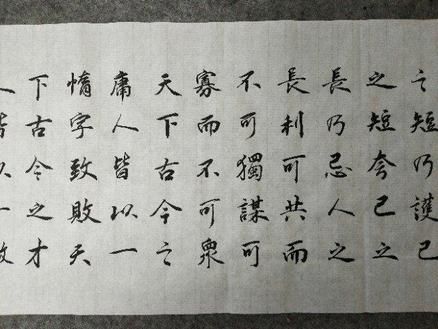 之短乃護己
之短夸己之
長乃忌人之
長利可共而
不可獨謀可
寡而不可衆
天下古今之
庸人皆以一
惰字致敗天
下古今之才
人皆以一